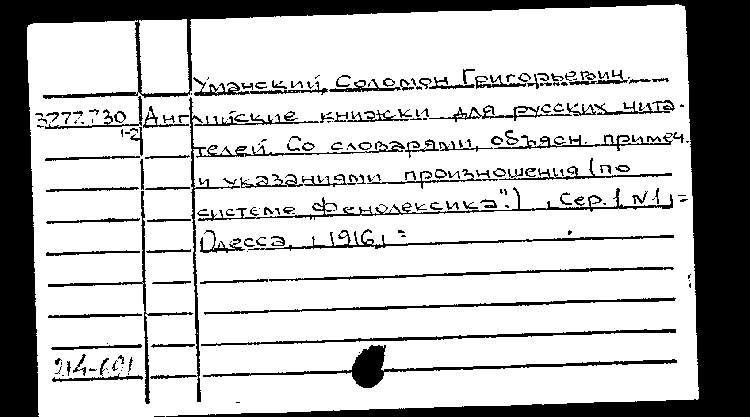 Уманский, Соломон Григорьевич.
3277730 Английские книжки для русских чита-
1-2
телей. Со словарями, объясн. примеч.
и указаниями произношения (по
системе „Фенолексика".) , Сер. 1 N 1, =
Одесса, [1916] =
214-691